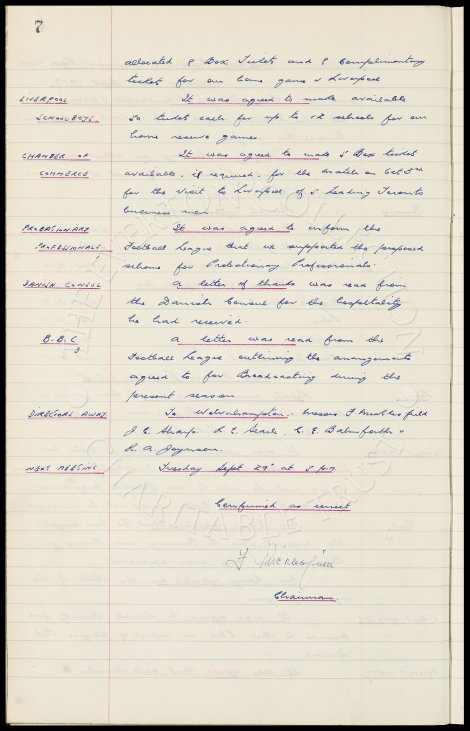 7
allocated 8 Box Tickets and 8 Complimentary
tickets for our home game v Liverpool
LIVERPOOL It was agreed to make available
SCHOOLBOYS 50 tickets each for up to 12 schools for our
home reserve games.
CHAMBER OF It was agreed to make 5 Box tickets
COMMERCE available, if required, for the match on Oct 3rd
for the visit to Liverpool of 5 Leading Toronto
business men.
PROBATIONARY It was agreed to inform the
PROFESSIONALS Football League that we supported the proposed
scheme for Probationary Professionals.
DANISH CONSUL A letter of thanks was read from
the Danish Consul for the hospitality
he had received.
B.B.C. A letter was read from the
Football League outlining the arrangements
agreed to for Broadcasting during the
present season.
DIRECTORS AWAY To Wolverhampton. Messrs F Micklesfield
J.C. Sharp. R.E. Searle. C.E. Balmforth &
R.A. Joynson.
NEXT MEETING Tuesday Sept 29th at 5 PM
Confirmed as correct
Chairman.
THE EVERTON COLLECTION
CHARITABLE TRUST